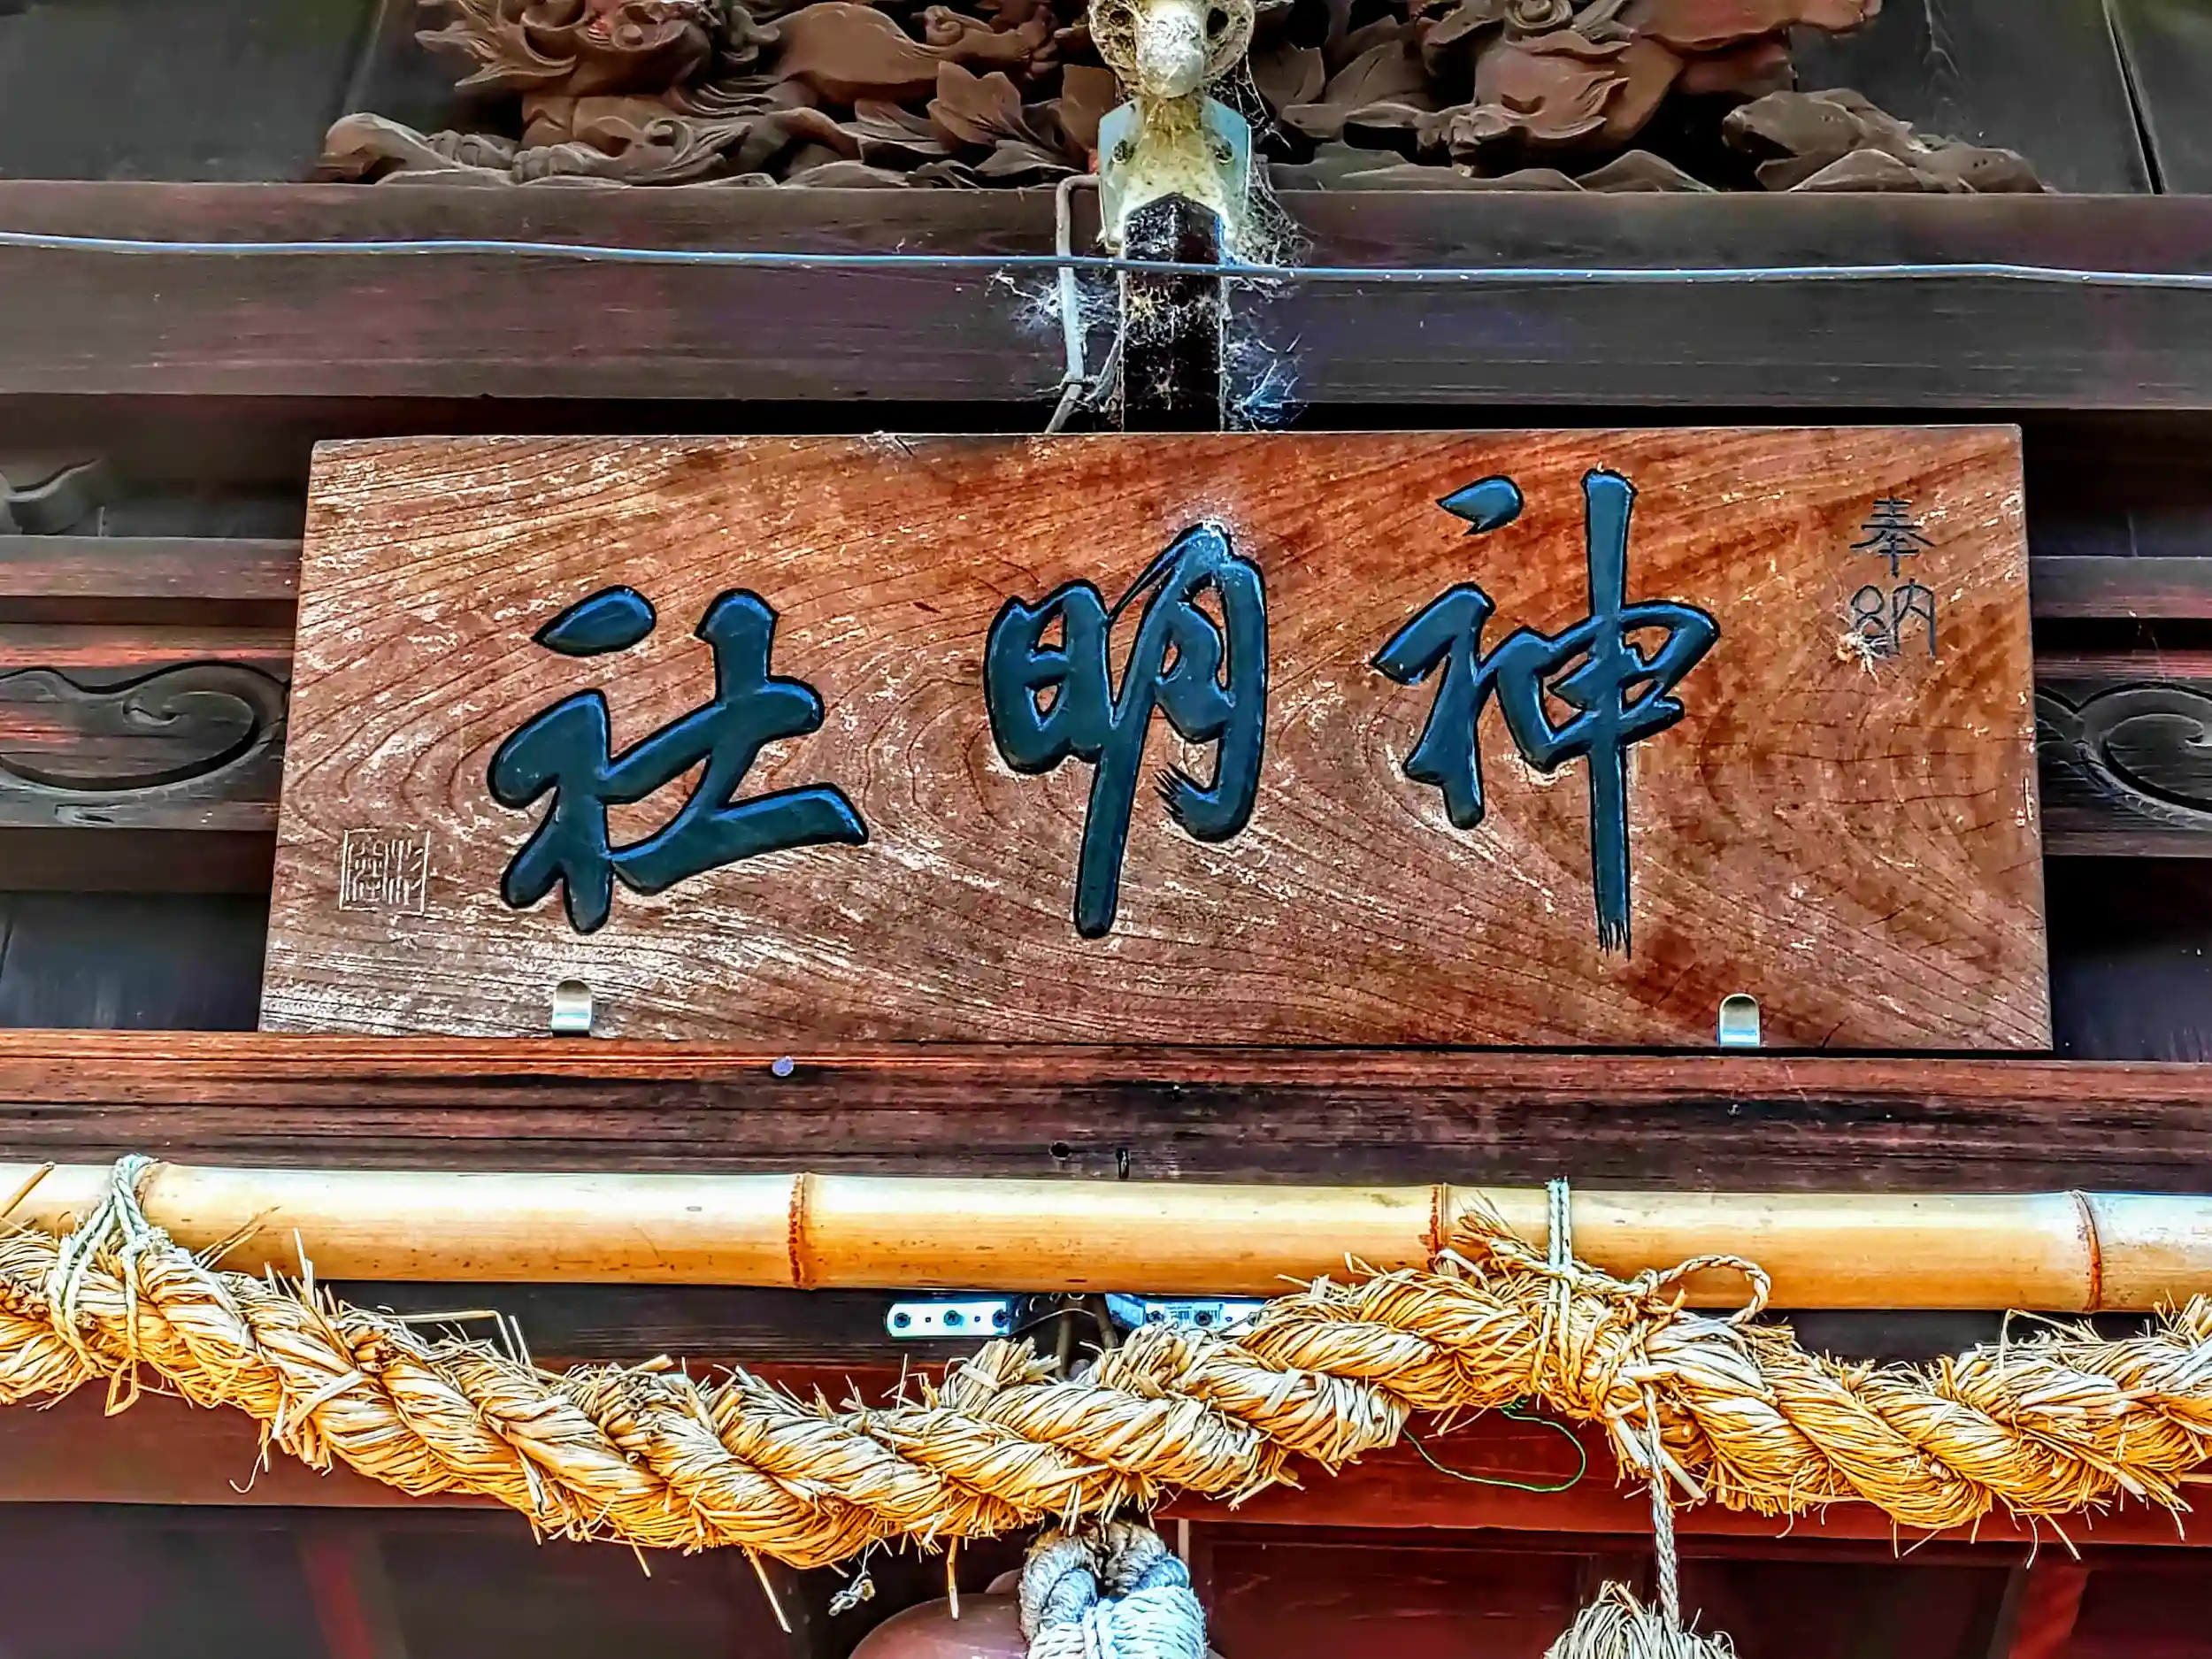 奉納
神明社